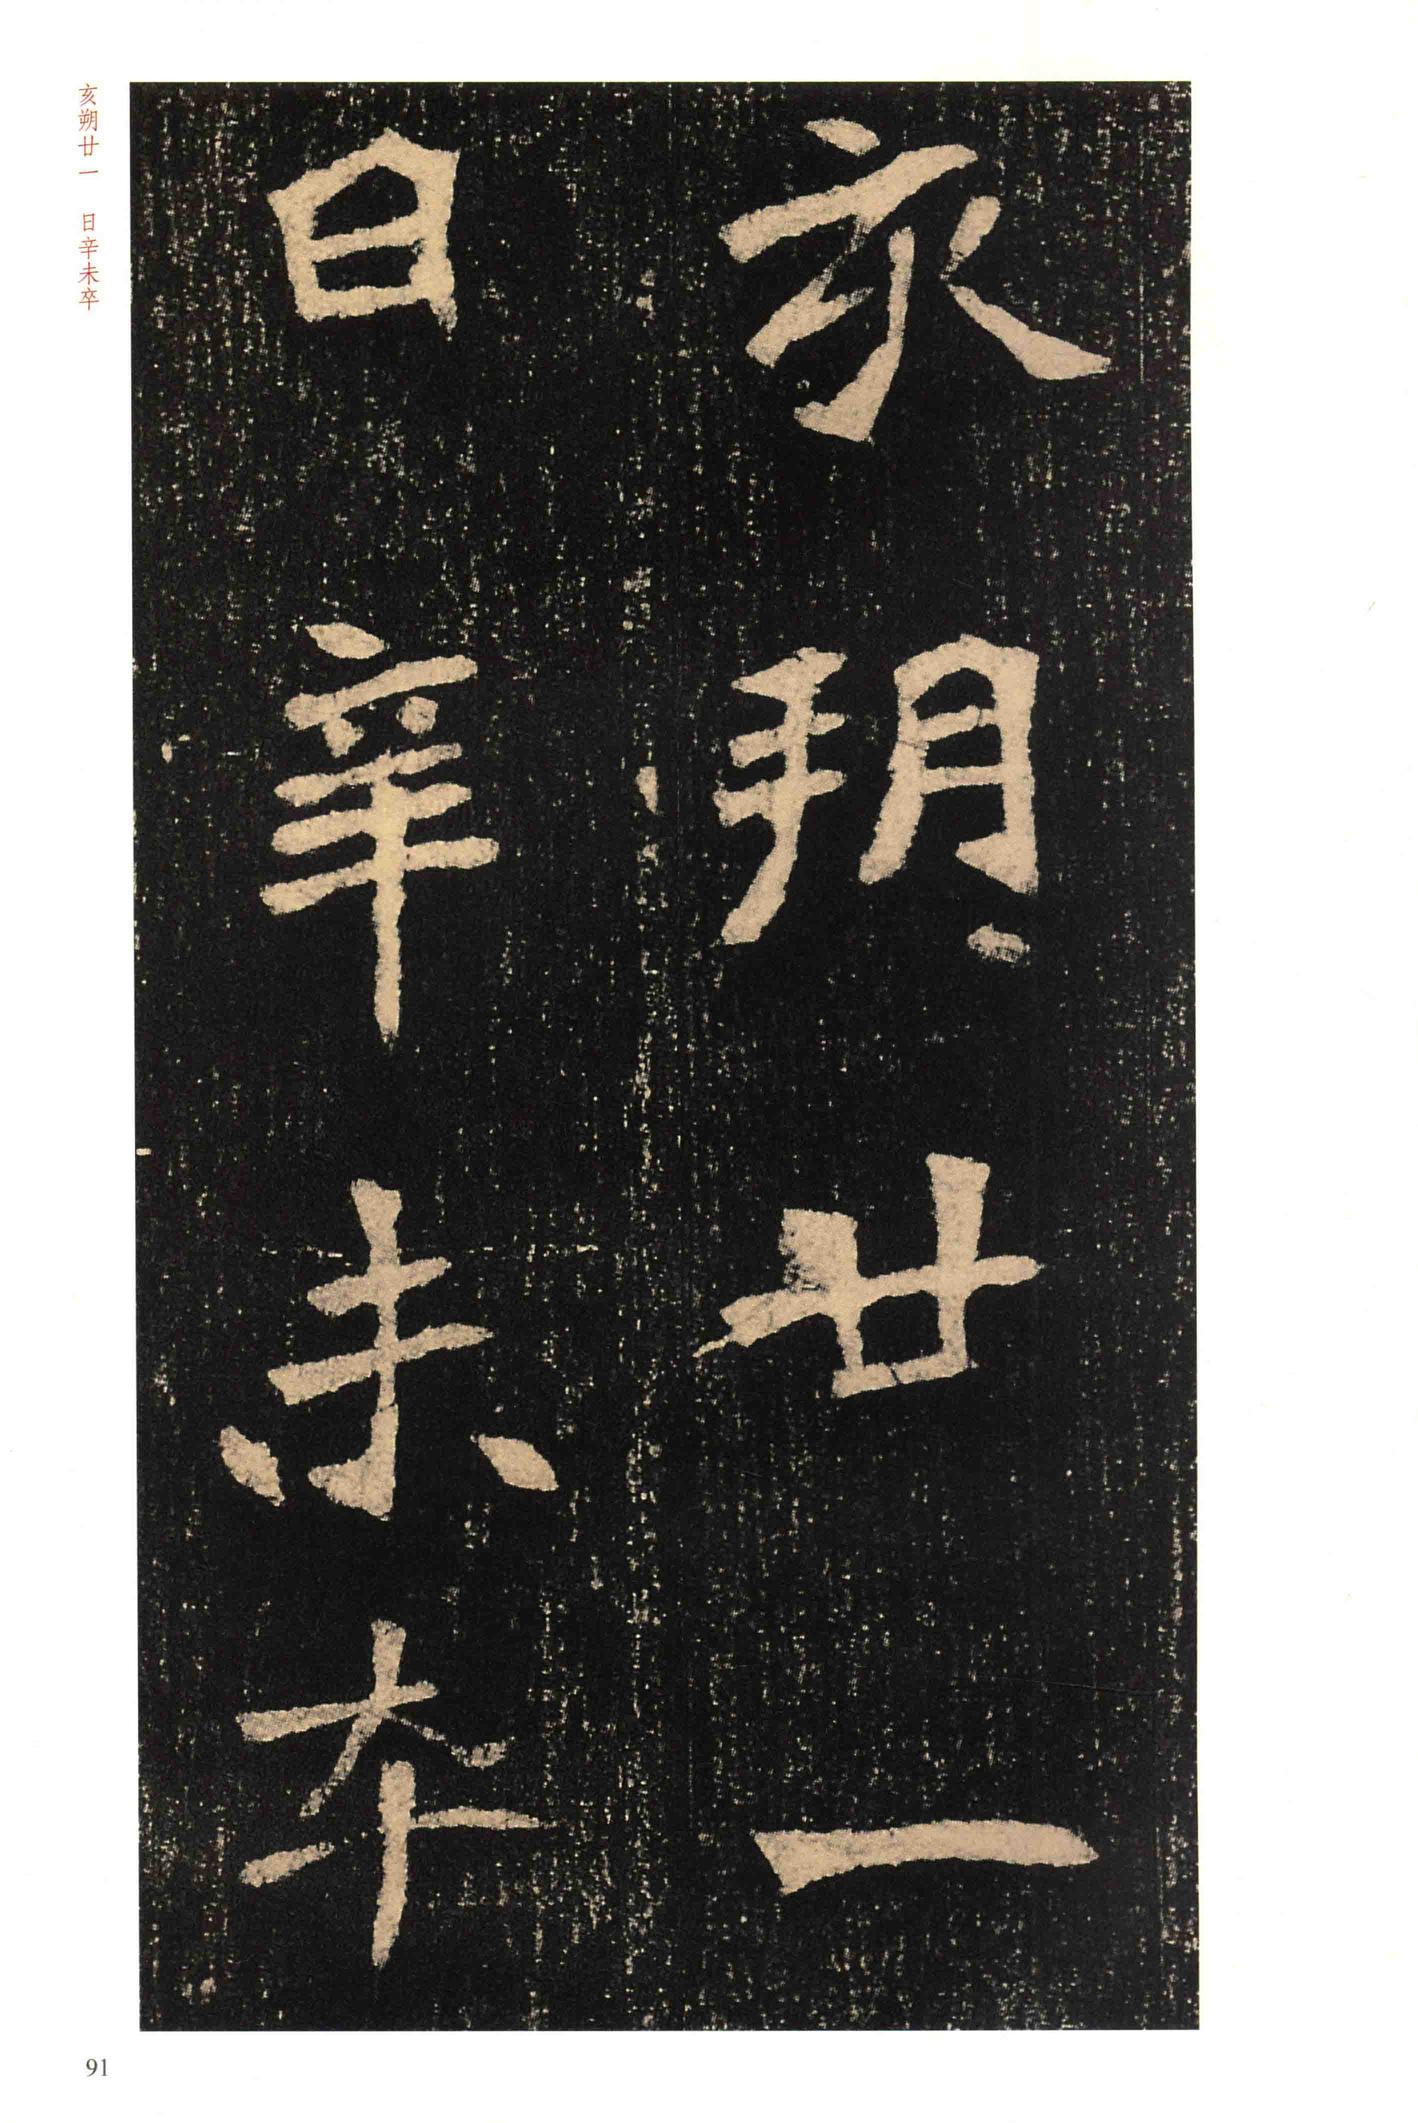 亥朔廿一
日辛未卒
亥朔廿一 日辛未卒
91